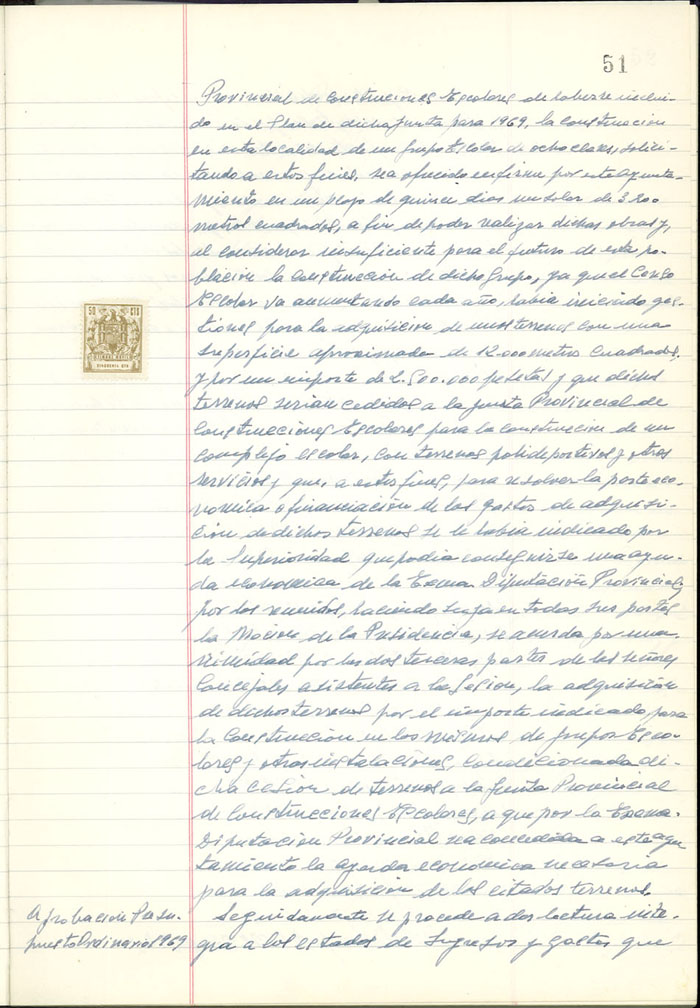 51
Provincial de Construciones Escolores de haberse inclui-
do en el Plan de dicha Junta para 1969, la construcion
en esta localidad de un Grupo Escolar de ocho clases, solici-
tando a estos fines, sea ofrecido en firme por este ayunta-
miento en un plazo de quince dias un solar de 3.200
metros cuadrados, a fin de poder realizar dichas obras y,
al considerar insuficiente para el futuro de esta po-
blacion la construccion de dicho Grupo, ya que el Censo
Escolar va aumentando cada año, habia iniciado ges-
tiones para la adquisicion de unos terrenos con una
superficie aproximada de 12.000 metros cuadrados,
y por un importe de 2.500.000 pesetas y que dichos
terrenos serian cedidos a la Junta Provincial de
Construcciones Escolares para la construccion de un
complejo escolar, con terrenos polideportivos y otros
servicios y que, a estos fines, para resolver la parte eco-
nomica o financiación de los gastos de adquisi-
ción de dichos terrenos se le habia indicado por
la Superioridad que podia conseguirse una ayu-
da economica de la Excma. Diputación Provincial,
por los reunidos, haciendo suya en todas sus partes
la Mocion de la Presidencia, se acuerda por una-
nimidad por las dos terceras partes de los señores
Concejales asistentes a la Sesion, la adquisición
de dichos terrenos por el importe indicado para
la Construccion en los mismos de Grupos Esco-
lares y otras instalaciones, condicionada di-
cha cesion de terrenos a la Junta Provincial
de Construcciones Escolares, a que por la Excma.
Diputacion Provincial sea concedida a este ayun
tamiento la ayuda economica necesaria
para la adquisicion de los citados terrenos.
Aprobacion Presu-
puesto Ordinario 1969
Seguidamente se procede a dar lectura inte-
gra a los estados de Ingresos y gastos que
50 CTS